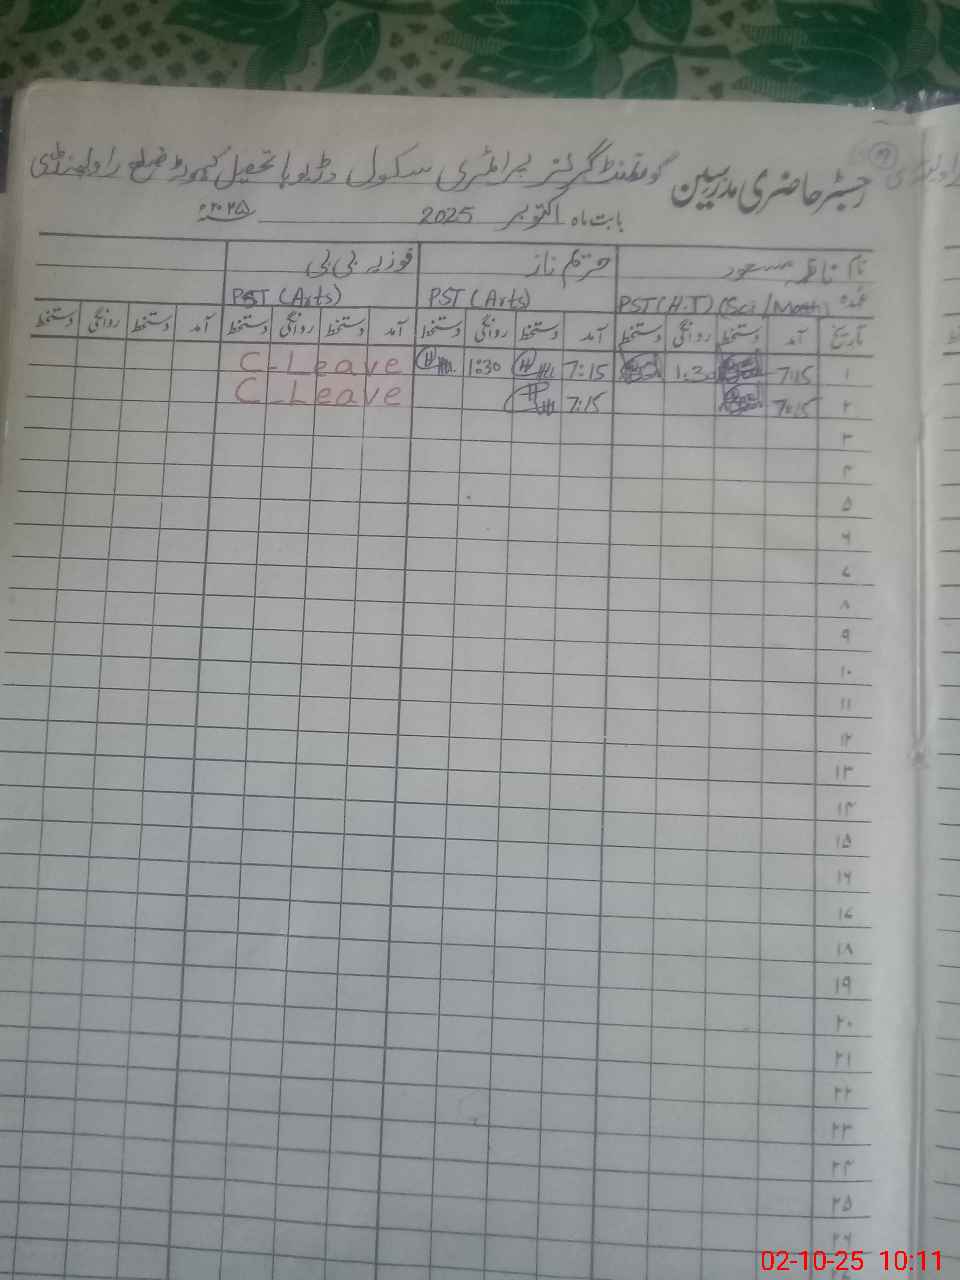 رجسٹر حاضری مدرسین گورنمنٹ گرلز پرائمری سکول وڈیوہا تحصیل کہوٹہ ضلع راولپنڈی
بابت ماہ اکتوبر 2025 ۲۰۲۵ء
نام ناظمہ مسعود حریم ناز فوزیہ بی بی
عہدہ PST (H.T) (Sci/Math) PST (Arts) PST (Arts)
تاریخ آمد دستخط روانگی دستخط آمد دستخط روانگی دستخط آمد دستخط روانگی دستخط آمد دستخط روانگی دستخط
۱ 7:15 1:30 7:15 1:30 C-Leave
۲ 7:15 7:15 C-Leave
۳
۴
۵
۶
۷
۸
۹
۱۰
۱۱
۱۲
۱۳
۱۴
۱۵
۱۶
۱۷
۱۸
۱۹
۲۰
۲۱
۲۲
۲۳
۲۴
۲۵
۲۶
02-10-25 10:11